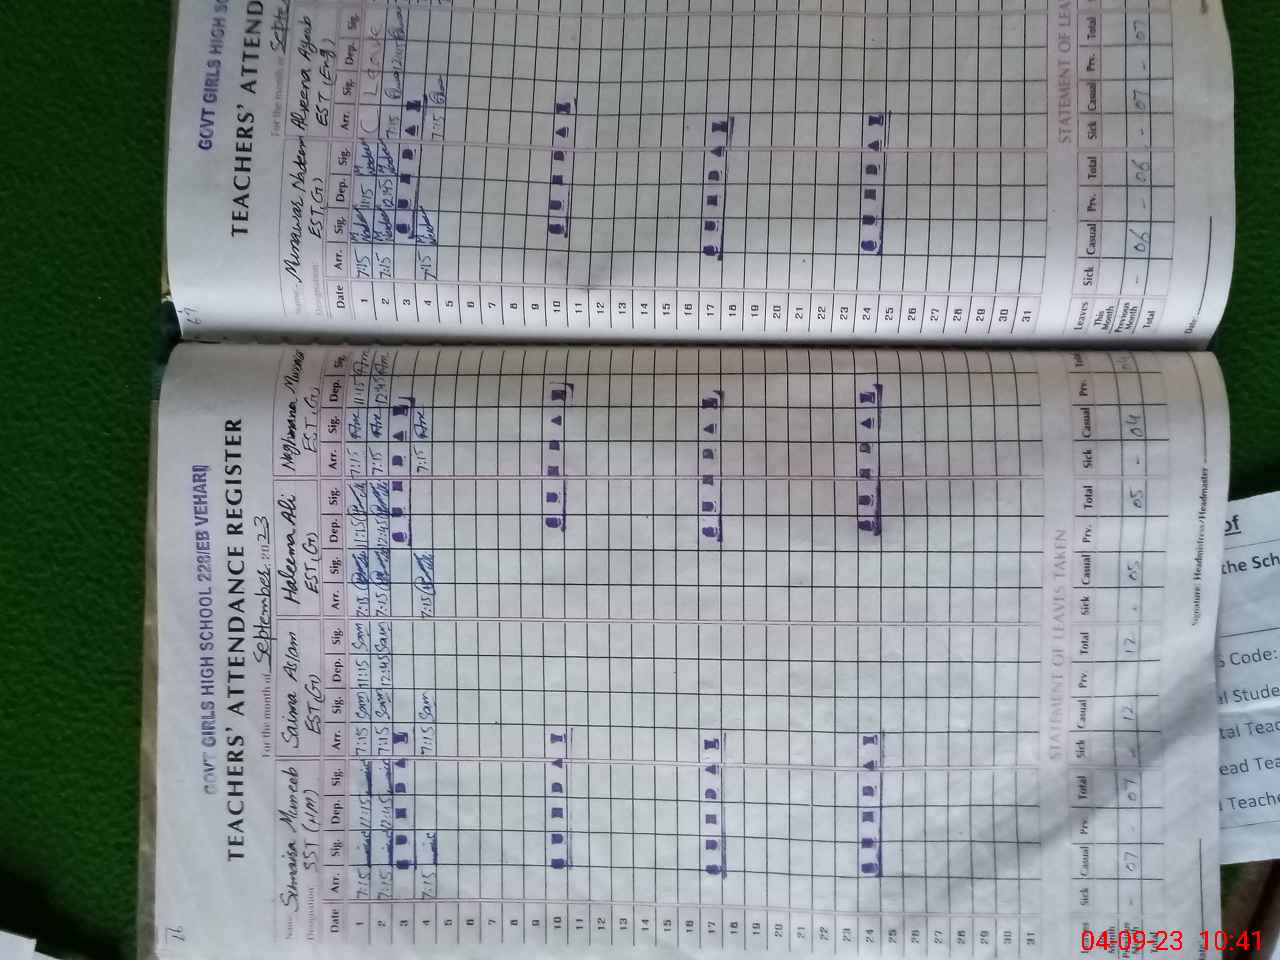 GOVT GIRLS HIGH SCHOOL 228/EB VEHARI
TEACHERS' ATTENDANCE REGISTER
For the month of September 2023
Name Sumaira Muneeb Saima Aslam Haleema Ali
Designation SST (NM) EST (G) EST (G) EST (G)
Date Arr. Sig. Dep. Sig. Arr. Sig. Dep. Sig. Arr. Sig. Dep. Sig. Arr. Sig. Dep. Sig.
1 7:15 11:15 7:15 Sam 11:15 Sam 7:15 11:15 7:15 11:15
2 7:15 12:45 7:15 Sam 12:45 Sam 7:15 12:45 7:15 12:45
3 SUNDAY SUNDAY
4 7:15 7:15 Sam 7:15 7:15
5
6
7
8
9
10 SUNDAY SUNDAY
11
12
13
14
15
16
17 SUNDAY SUNDAY
18
19
20
21
22
23
24 SUNDAY SUNDAY
25
26
27
28
29
30
31
STATEMENT OF LEAVES TAKEN
Sick Casual Prv. Total Sick Casual Prv. Total Sick Casual Prv. Total Sick Casual Prv.
- 07 - 07 - 12 12 - 05 05 - 04 04
Signature: Headmistress/Headmaster
67
GOVT GIRLS HIGH SC
TEACHERS' ATTEND
For the month of Septe
Name Munawar Nadeem Alveena Ayub
Designation EST (G) EST (Eng)
Date Arr. Sig. Dep. Sig. Arr. Sig. Dep. Sig.
1 7:15 11:15 Leave
2 7:15 12:45 7:15 12:45
3 SUNDAY
4 7:15 7:15
5
6
7
8
9
10 SUNDAY
11
12
13
14
15
16
17 SUNDAY
18
19
20
21
22
23
24 SUNDAY
25
26
27
28
29
30
31
STATEMENT OF LEAV
Leaves Sick Casual Prv. Total Sick Casual Prv. Total
This Month
Previous Month - 06 - 06 - 07 - 07
Total
Date:
of
the Sch
S Code:
al Stude
tal Teac
ead Tea
Teache
04-09-23 10:41